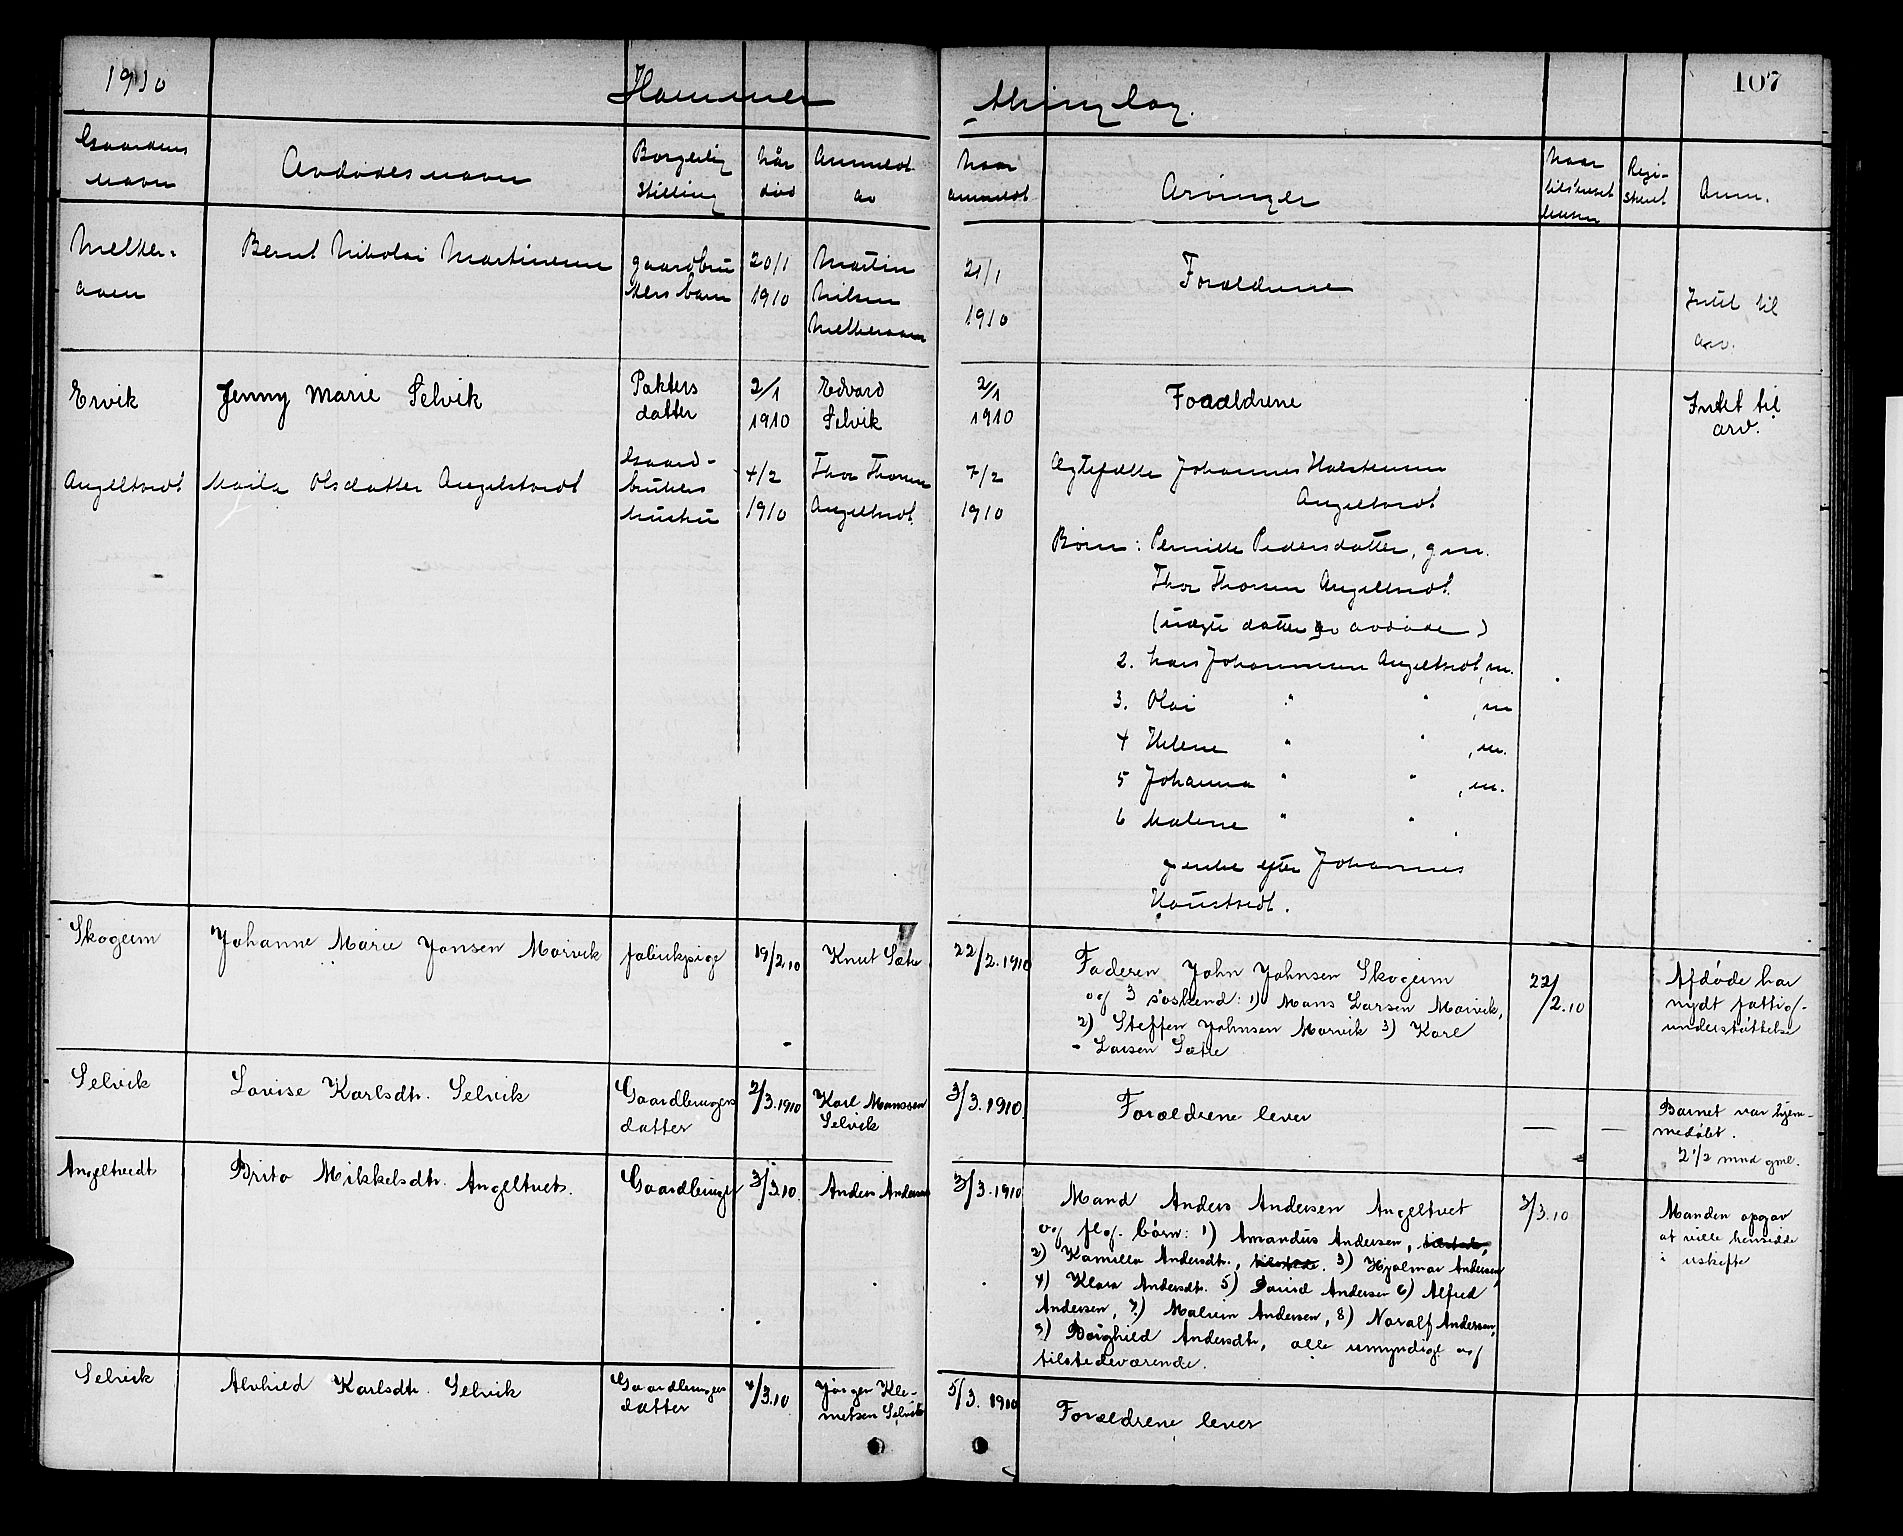 1910 Hammer thinglag. 107
Gaardens navn
Avdødes navn
Borgerlig stilling
Når død
Anmeldt av
Naar anmeldt
Arvinger
Naar tilskuset
Regi-
streret
Anm.
Melker-
aaen
Bernt Nikolai Martinsen
gaardbru
kers barn
20/1
1910
Martin
Nilsen
Melkeraaen
21/1
1910
Forældrene
Intet til
arv.
Ervik
Jenny Marie Selvik
Pakters
datter
2/1
1910
Edvard
Selvik
2/1
1910
Foraeldrene
Intet til
arv.
Angeltvedt
Marie Olsdatter Angeltvedt
Gaard-
brukers
hustru
4/2
1910
Thor Thorsen
Angeltvedt
7/2
1910
Ægtefælle Johannes Halstensen
Angeltvedt
Børn: Pernille Pedersdatter, g.m.
Thor Thorsen Angeltvedt
(uægte datter av avdøde)
2. Lars Johannessen Angeltvedt, m.
3. Olai " " , m
4 Helene " " , m.
5 Johanna " " , m.
6 Malene " " .
g enke efter Johannes
Houstvedt.
Skogeim
Johanne Marie Jonsen Morvik
fabrikpige
19/2.10
Knut Sætre
22/2.1910
Faderen John Johnsen Skogeim
og 3 søskend: 1) Mons Larsen Morvik,
2) Steffen Johnsen Morvik 3) Karl
- Larsen Sætre
22/2.10
Afdøde har
nydt fattig-
understøttelse
Selvik
Lovise Karlsdtr. Selvik
Gaardbrugers
datter
2/3.1910
Karl Monssen
Selvik
3/3.1910.
Forældrene lever
— —
Barnet var hjem-
medøbt.
2 1/2 mnd gml.
Angeltvedt
Brita Mikkelsdtr. Angeltvet.
Gaardbruger
3/3.10.
Anders Andersen
3/3.1910
Mand Anders Andersen Angeltvet
og flg. børn: 1) Amandus Andersen,
2) Kamilla Andersdtr., 3) Hjalmar Andersen
4) Klara Andersdtr. 5) David Andersen 6) Alfred
Andersen, 7) Malvin Andersen, 8) Noralf Andersen,
9) Borghild Andersdtr, alle umyndige og
tilstedeværende.
3/3.10
Manden opgav
at ville hensidde
i uskifte
Selvik
Alvhild Karlsdtr. Selvik
Gaardbrugers
datter
4/3.10
Jørgen Kle-
metsen Selvik
5/3. 1910
Forældrene lever